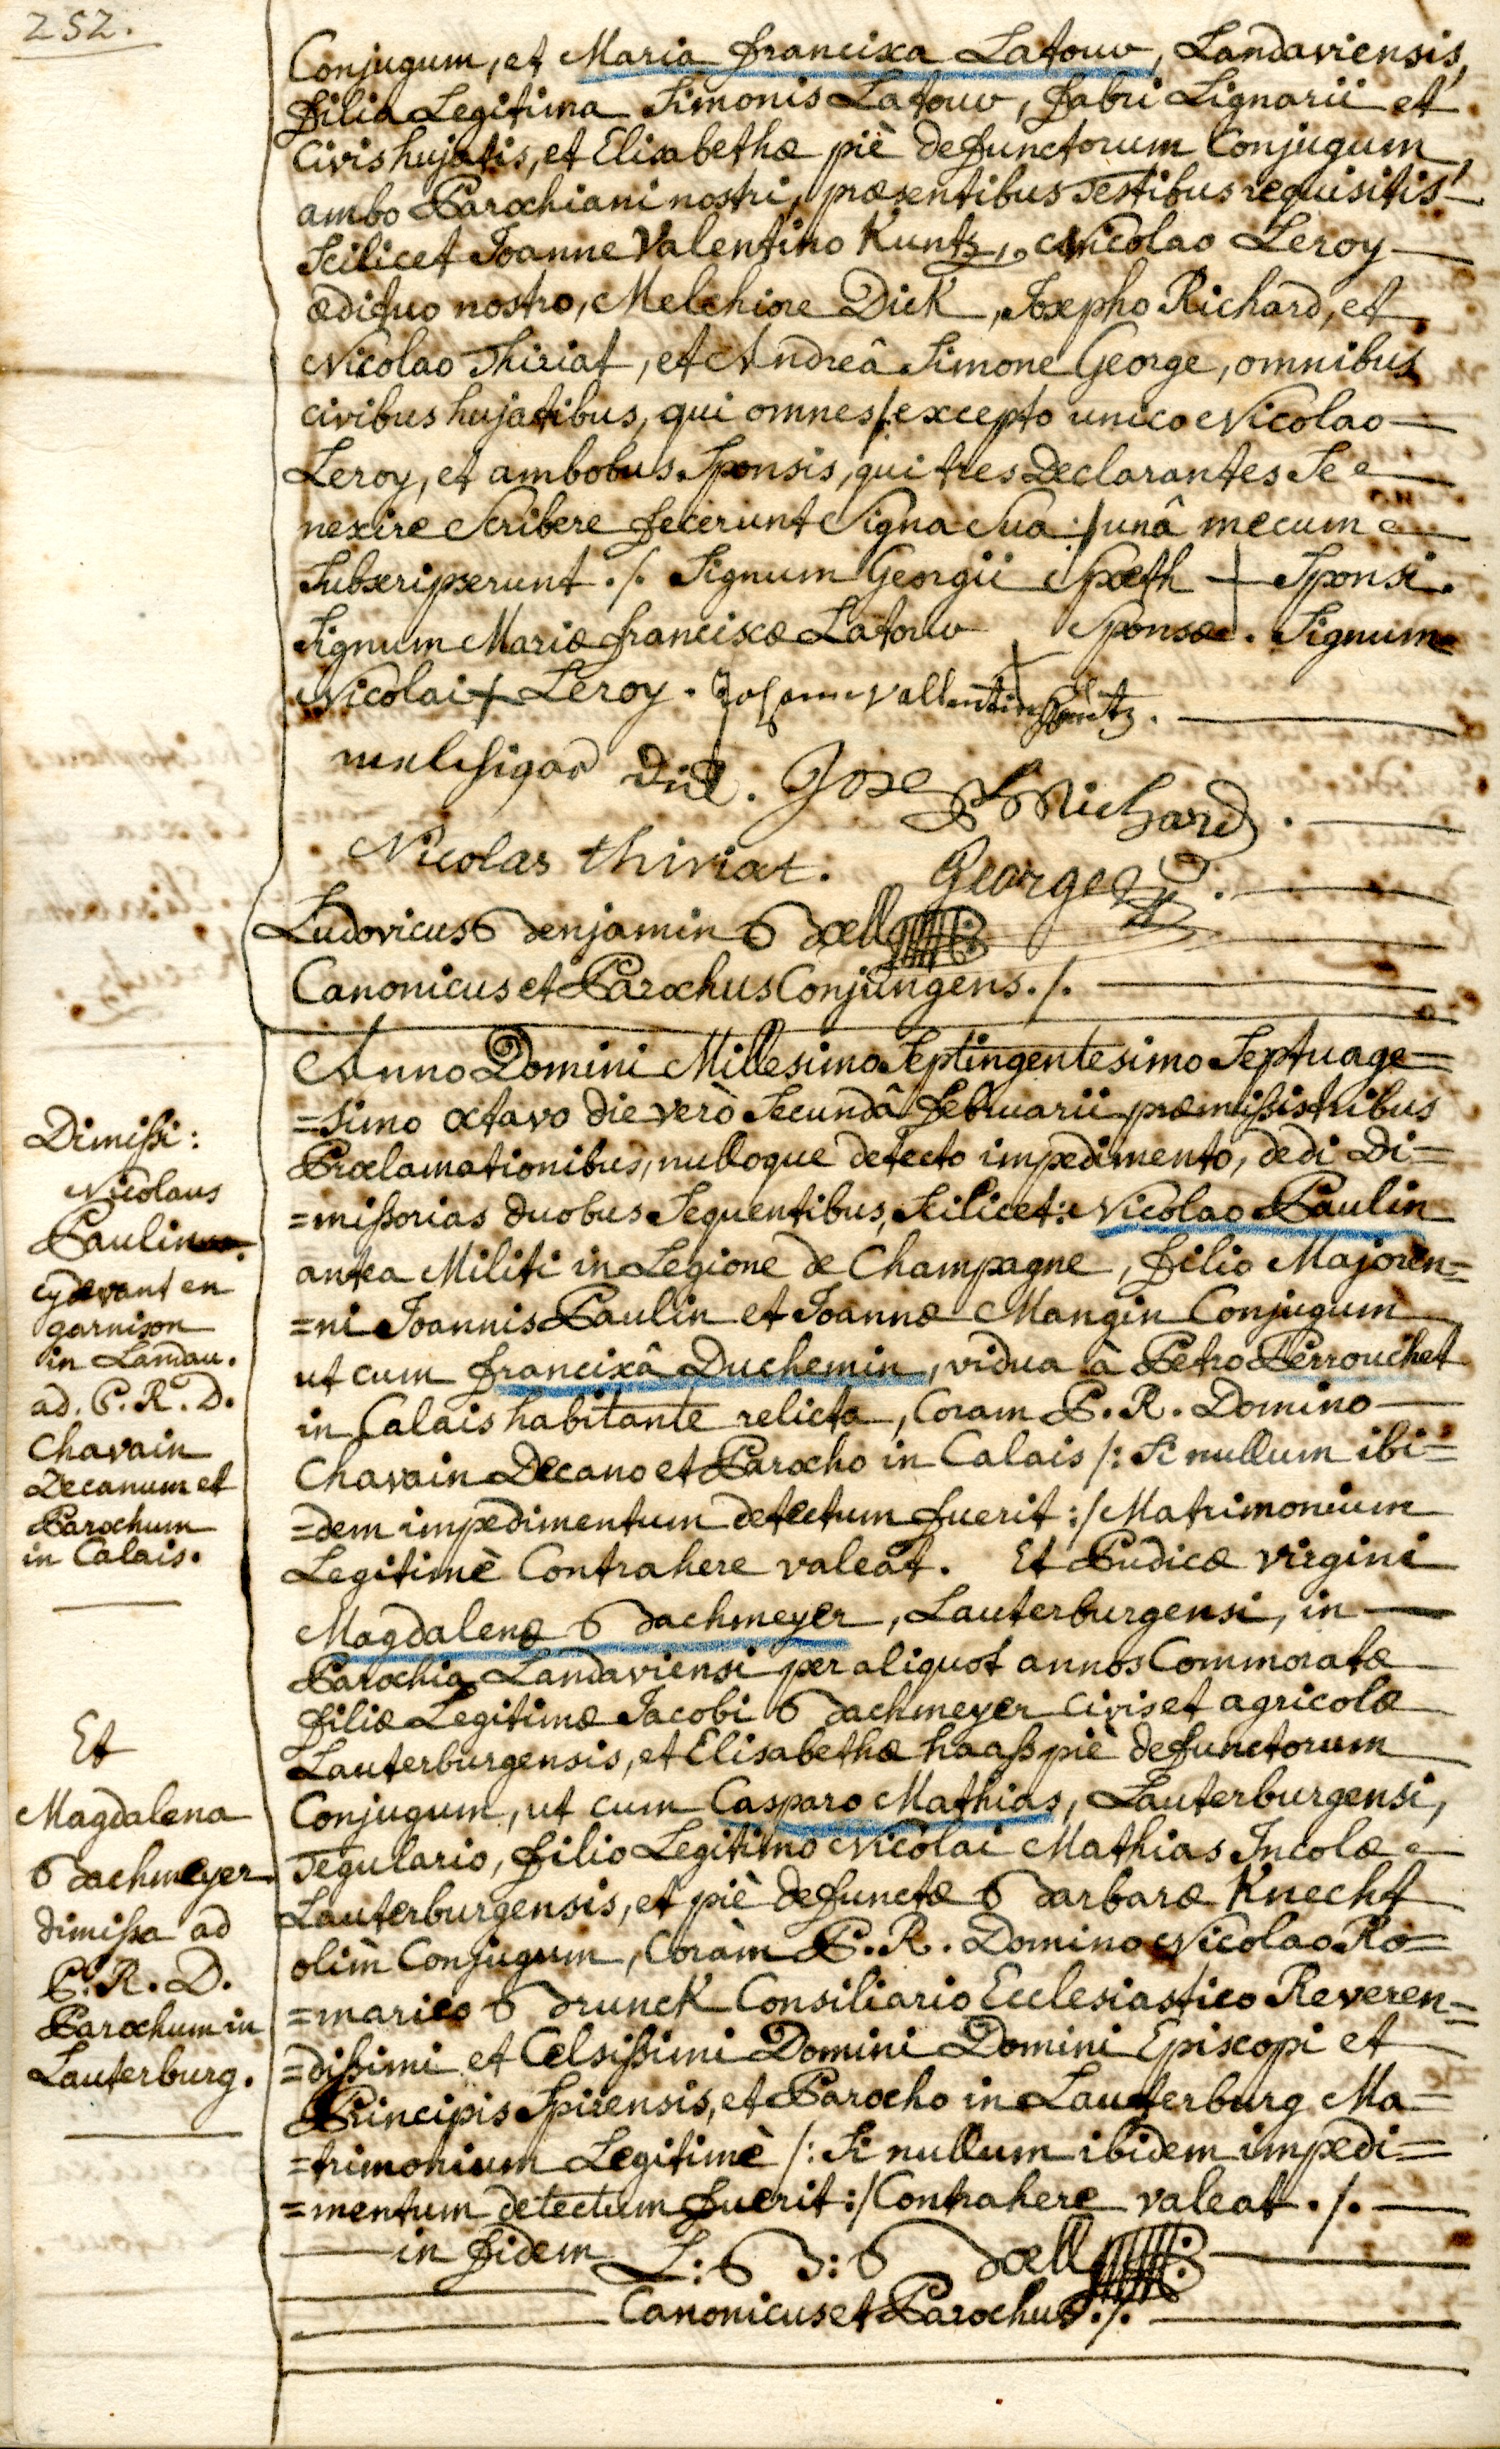 252.
Conjugum, et Maria Francisca Latouv, Landaviensis,
Filia Legitima Simonis Latouv, Fabri Lignarii et
Civis hujatis, et Elisabethæ piè defunctorum Conjugum,
ambo Parochiani nostri, præsentibus Testibus requisitis
Scilicet Joanne Valentino Kuntz, Nicolao Leroy
ædituo nostro, Melchiore Dick, Josepho Richard, et
Nicolao Thiriat, et Andreâ Simone George, omnibus
civibus hujatibus, qui omnes /: excepto unico Nicolao
Leroy, et ambobus Sponsis, qui tres Declarantes Se
nescire Scribere fecerunt Signa Sua :/ unâ mecum
Subscripserunt ./. Signum Georgii Spæth + Sponsi.
Signum Mariæ Franciscæ Latouv + Sponsæ. Signum
Nicolai + Leroy. Johannes Vallentin Kuntz.
melchigor Dick. Joseph Richard.
Nicolas thiriat. George
Ludovicus Benjamin Bæll
Canonicus et Parochus Conjungens ./.
Anno Domini Millesimo Septingentesimo Septuage=
=simo octavo die verò Secundâ Februarii præmissis tribus
Proclamationibus, nulloque detecto impedimento, dedi Di=
=missorias duobus Sequentibus, Scilicet: Nicolao Paulin
antea Militi in Legione de Champagne, filio Majoren=
=ni Joannis Paulin et Joannæ Mangin Conjugum
ut cum Franciscâ Duchemin, vidua à Petro Perrouchet
in Calais habitante relicta, Coram P. R. Domino
Chavain Decano et Parocho in Calais /: Si nullum ibi=
=dem impedimentum detectum fuerit :/ Matrimonium
Legitimè Contrahere valeat. Et Pudicæ virgini
Magdalenæ Bachmeyer, Lauterburgensi, in
Parochia Landaviensi per aliquot annos Commoratæ
filiæ Legitimæ Jacobi Bachmeyer Civis et agricolæ
Lauterburgensis, et Elisabethæ haass piè defunctorum
Conjugum, ut cum Casparo Mathias, Lauterburgensi,
Tegulario, filio Legitimo Nicolai Mathias Incolæ
Lauterburgensis, et piè defunctæ Barbaræ Knecht
olim Conjugum, Coram P. R. Domino Nicolao Ro=
=marico Brunck Consiliario Ecclesiastico Reveren=
=dissimi et Celsissimi Domini Domini Episcopi et
Principis Spirensis, et Parocho in Lauterburg Ma=
=trimonium Legitimè /: Si nullum ibidem impedi=
=mentum detectum fuerit :/ Contrahere valeat ./.
in fidem L: B: Bæll
Canonicus et Parochus ./.
Dimissi:
Nicolaus
Paulin
cydevant en
garnison
in Landau.
ad. P. R. D.
Chavain
Decanum et
Parochum
in Calais.
Et
Magdalena
Bachmeyer
dimissa ad
P. R. D.
Parochum in
Lauterburg.